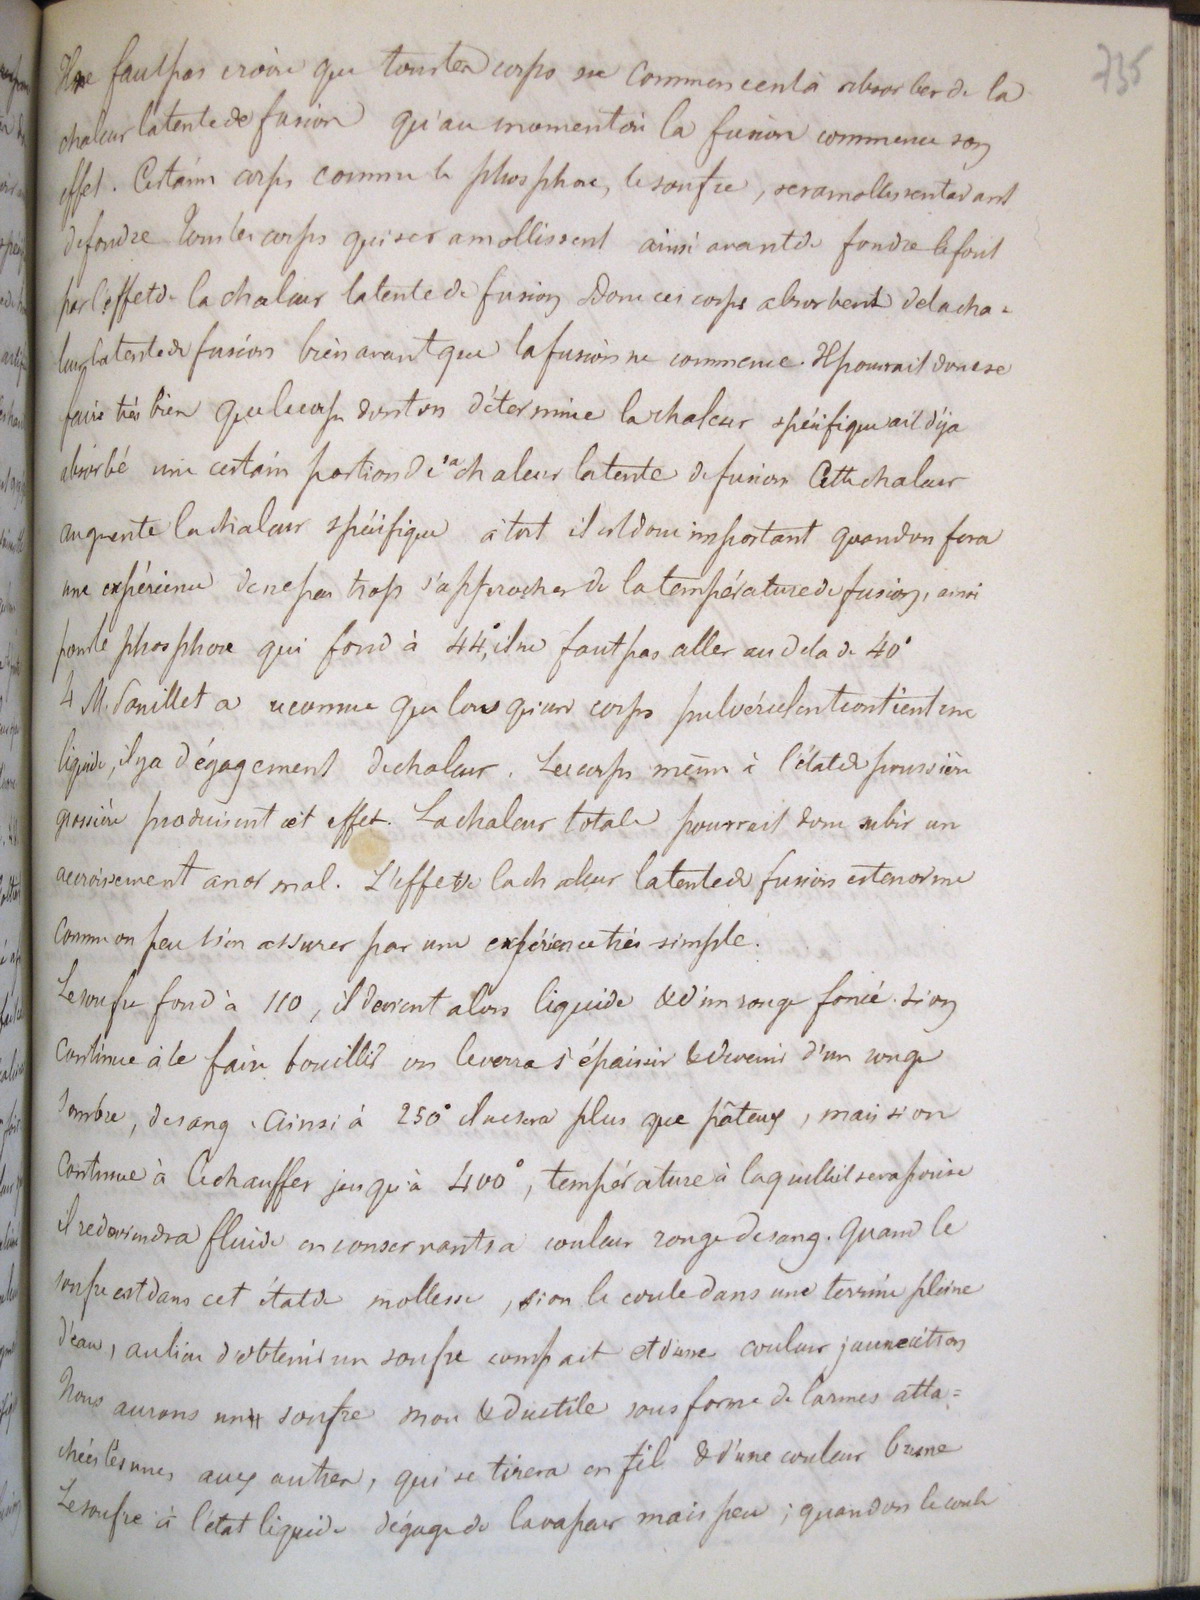 735
Il ne faut pas croire que tous les corps ne commencent à absorber de la
chaleur latente de fusion qu'au moment où la fusion commence son
effet. Certains corps comme le phosphore, le soufre, se ramollissent avant
de fondre Tous les corps qui se ramollissent ainsi avant de fondre le font
par l'effet de la chaleur latente de fusion Donc ces corps absorbent de la cha=
leur latente de fusion bien avant que la fusion ne commence. Il pourrait donc se
faire très bien que le corps dont on détermine la chaleur spécifique ait déja
absorbé une certain portion de sa chaleur latente de fusion Cette chaleur
augmente la chaleur spécifique à tort il est donc important quand on fera
une expérience de ne pas trop s'approcher de la température de fusion, ainsi
pour le phosphore qui fond à 44°, il ne faut pas aller au dela de 40°
4 M. Pouillet a reconnu que lors qu'un corps pulvérulent contient un
liquide, il y a dégagement de chaleur. Les corps même à l'état de poussière
grossière produisent cet effet. La chaleur totale pourrait donc subir un
accroissement anormal. L'effet de la chaleur latente de fusion est enorme
comme on peut s'en assurer par une expérience très simple.
Le soufre fond à 110, il devient alors liquide & d'un rouge foncé. Si on
continue à le faire bouillir on le verra s'épaissir & devenir d'un rouge
sombre, de sang. Ainsi à 250° il ne sera plus que pâteux, mais si on
continue à le chauffer jusqu'à 400°, température à laquelle il se vaporise
il redeviendra fluide en conservant sa couleur rouge de sang. Quand le
soufre est dans cet état de mollesse, si on le coule dans une terrine pleine
d'eau, au lieu d'obtenir un soufre compact et d'une couleur jaune citron
Nous aurons un soufre mou & ductile sous forme de larmes atta=
chées les unes aux autres, qui se tirera en fil & d'une couleur brune
Le soufre à l'état liquide dégage de la vapeur mais peu ; quand on le coule